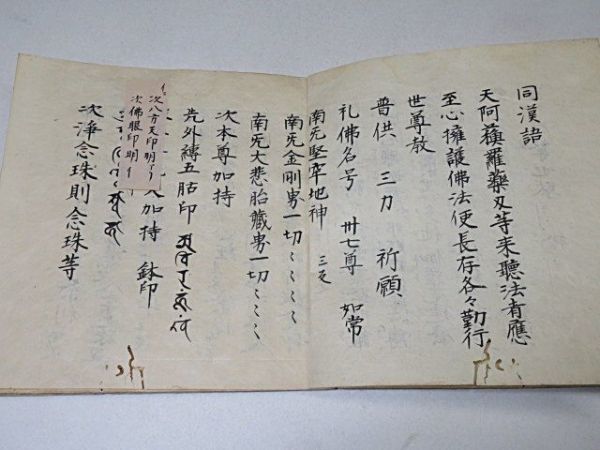 同漢語
天阿蘓羅藥叉等来聴法者應
至心擁護佛法使長存各々勤行
世尊教
普供 三力 祈願
礼佛名号 卅七尊 如常
南无堅牢地神 三反
南无金剛界一切〻〻〻〻
南无大悲胎蔵界一切〻〻〻
次本尊加持
先外縛五肱印
次八方天印明
次佛眼印明
加持 鉢印
次浄念珠則念珠等